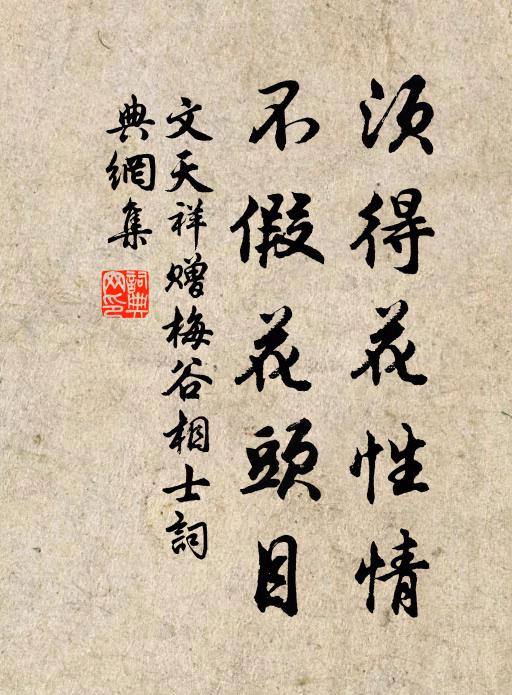 須得花性情
不假花頭目
文天祥贈梅谷相士詞
典網集
詞典網印